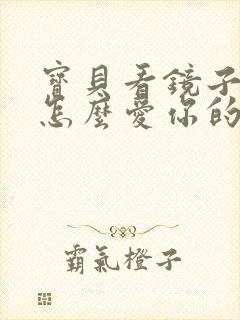 寶貝看鏡子
怎麼愛你的
霸氣橙子